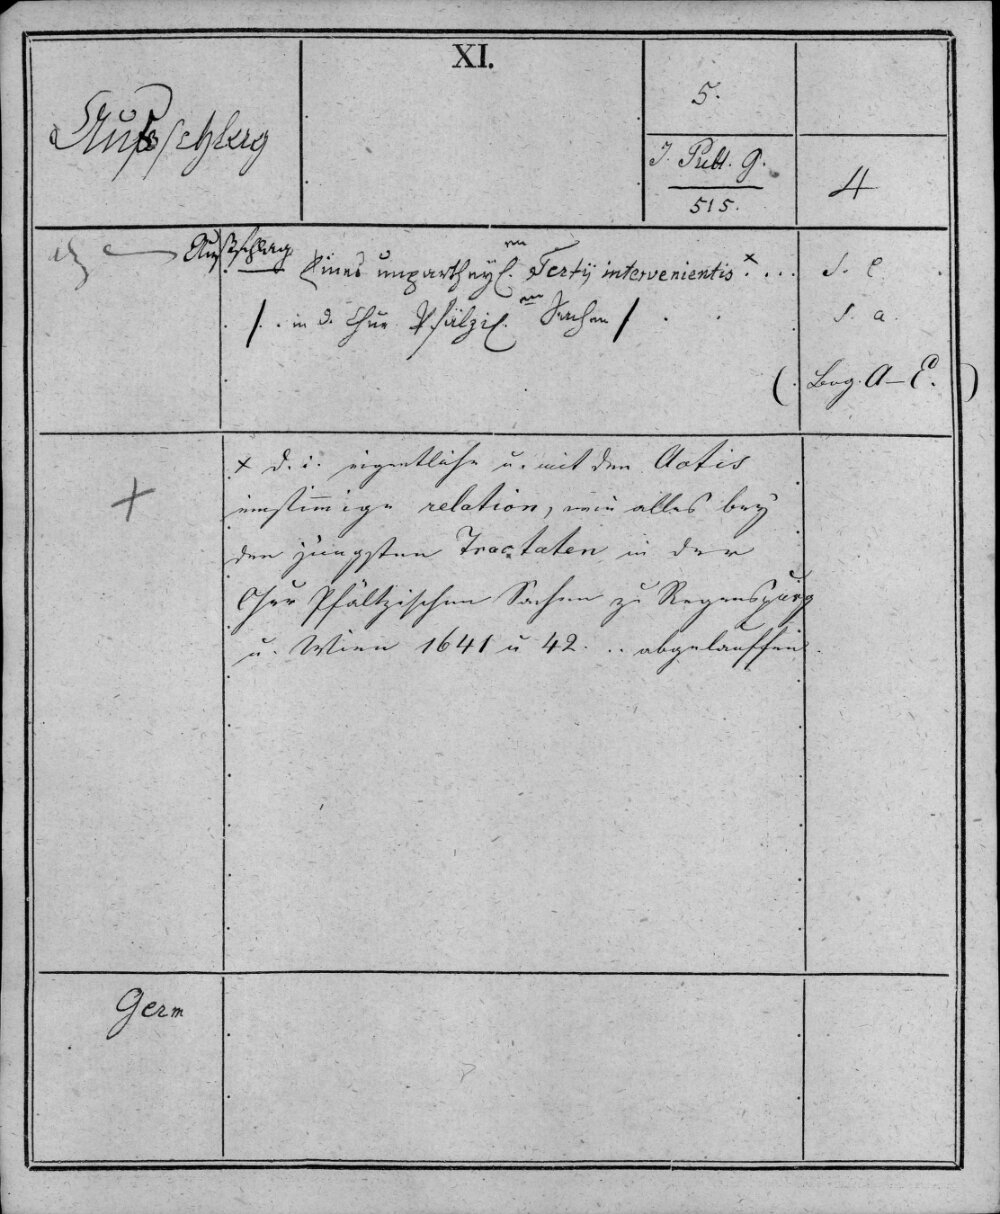 XI.
Außschlag
5.
J. Publ. g.
515.
4
Außschlag Eines unpartheyl. en Tertij intervenientis x . . .
S. l.
/ . . in d. Chur Pfälzis. en Sachen /
S. a.
( Bog. A–E. )
x d. i. eigentliche u. mit den Actis
einstimmige relation, wie alles bey
den jüngsten Tractaten in der
Chur Pfältzischen Sachen zu Regenspurg
u. Wien 1641 u 42. . . abgelauffen.
Germ